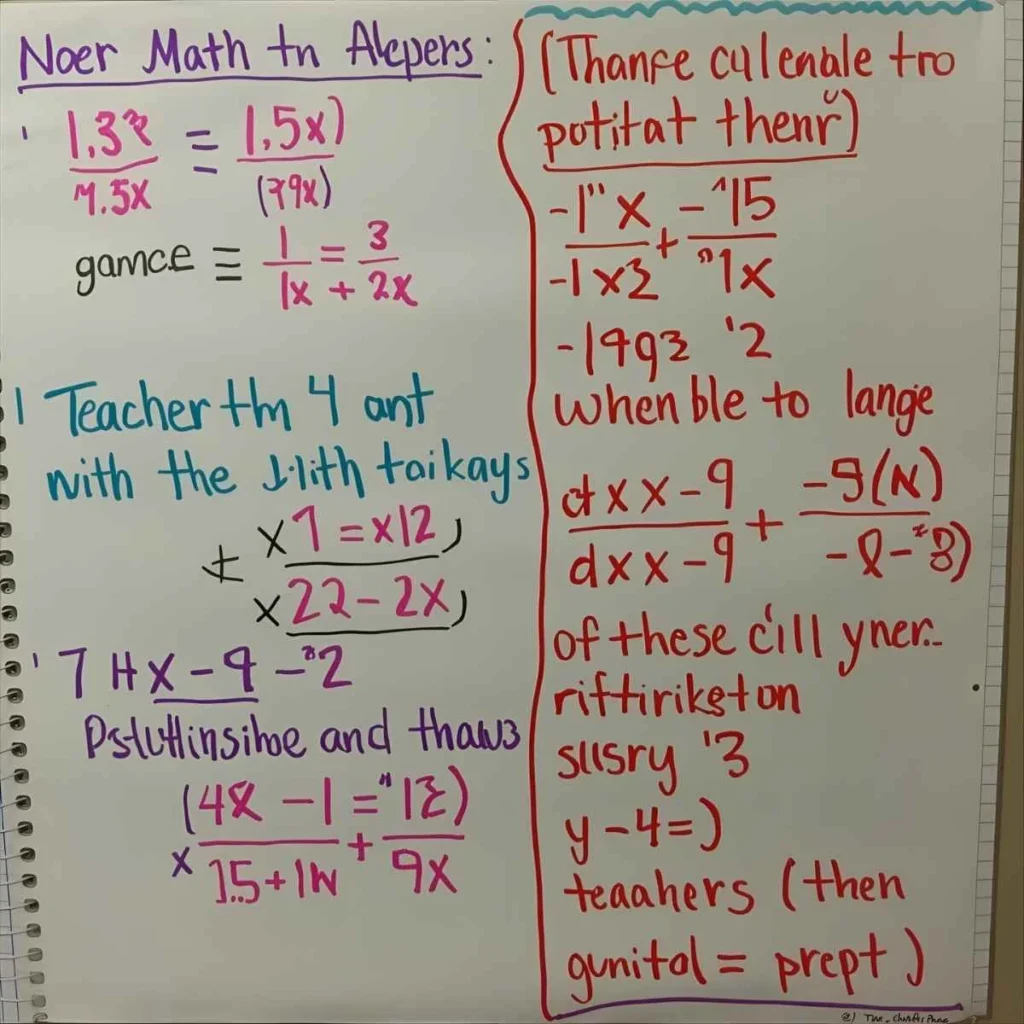 Noer Math tn Alepers:
1,3
7.5x
=
1,5x)
(79x)
gamce ≡ 1/1x = 3/+ 2x
1 Teacher thm 4 ant
with the 1·lith taikays
± x 7 = x12
x 22 - 2x
' 7 Hx - 9 - 2
and thaws
(48x - 1 =
x 15 + 1
+
9x
(Thanfe culenale tro
potitat thenr)
-1"x
-1x3
+
-15
"1x
-1993 '2
when ble to lange
dxx-9
dxx-9
+
-9(N)
-8-*8)
of these c'ill yner..
riftirikston
slisry '3
y-4=)
teaahers (then
gunital = prept)